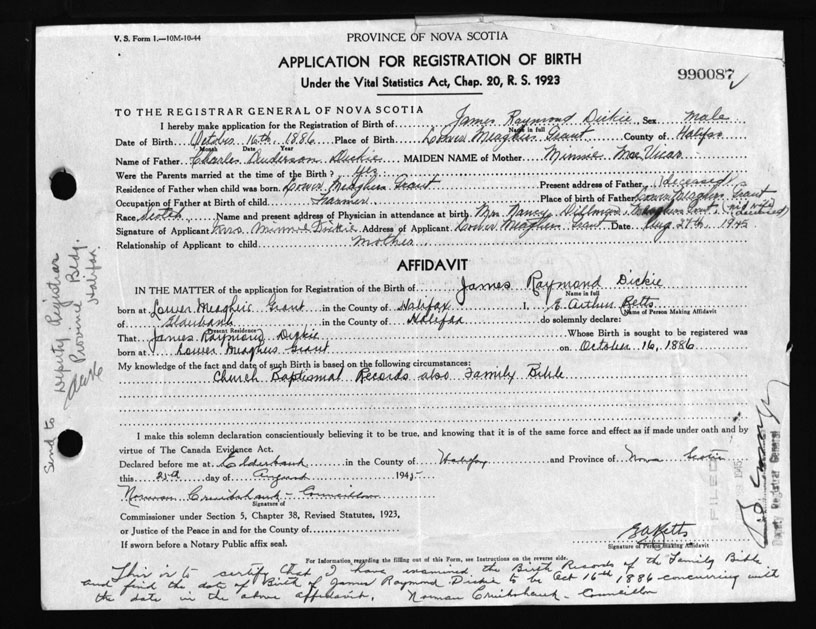 V. S. Form 1.—10M-10-44
PROVINCE OF NOVA SCOTIA
APPLICATION FOR REGISTRATION OF BIRTH
Under the Vital Statistics Act, Chap. 20, R. S. 1923
990087
TO THE REGISTRAR GENERAL OF NOVA SCOTIA
I hereby make application for the Registration of Birth of James Raymond Dickie Sex Male
Name in full
Date of Birth October 16th, 1886 Place of Birth Lower Meaghers Grant County of Halifax
Month Date Year
Name of Father Charles Anderson Dickie MAIDEN NAME of Mother Minnie MacVicar
Were the Parents married at the time of the Birth? Yes
Residence of Father when child was born Lower Meaghers Grant Present address of Father (deceased)
Occupation of Father at Birth of Child Farmer Place of birth of Father Lower Meaghers Grant
Race Scotch Name and present address of Physician in attendance at birth Mrs. Nancy Dillman, Meaghers Grant, (mid wife) (deceased)
Signature of Applicant Mrs Minnie Dickie Address of Applicant Lower Meaghers Grant Date Aug 27th, 1945
Relationship of Applicant to child Mother
AFFIDAVIT
IN THE MATTER of the application for Registration of the Birth of James Raymond Dickie
Name in full
born at Lower Meaghers Grant in the County of Halifax I, E. Arthur Betts
Name of Person Making Affidavit
of Elderbank in the County of Halifax do solemnly declare:
Present Residence
That James Raymond Dickie Whose Birth is sought to be registered was
born at Lower Meaghers Grant on October 16, 1886
My knowledge of the fact and date of such Birth is based on the following circumstances:
Church Baptismal Records also Family Bible
I make this solemn declaration conscientiously believing it to be true, and knowing that it is of the same force and effect as if made under oath and by
virtue of The Canada Evidence Act.
Declared before me at Elderbank in the County of Halifax and Province of Nova Scotia
this day of August 1945
Norman Cruikshank - Councillor
Signature of
Commissioner under Section 5, Chapter 38, Revised Statutes, 1923,
or Justice of the Peace in and for the County of
If sworn before a Notary Public affix seal.
E A Betts
Signature of Person Making Affidavit
For Information regarding the filling out of this Form, see Instructions on the reverse side.
This is to certify that I have examined the Birth Records of the Family Bible
and find the date of Birth of James Raymond Dickie to be Oct 16th 1886 concurring with
the date in the above affidavit. Norman Cruikshank - Councillor
Send to
Deputy Registrar
Province Bldg.
Halifax
FILED
1945
Deputy Registrar General